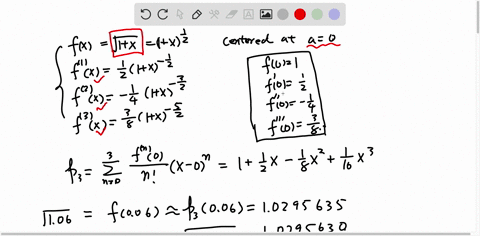 f(x) = √1+x = (1+x)^{1/2} centered at a=0
f^{(1)}(x) = 1/2 (1+x)^{-1/2} f(0)=1
f^{(2)}(x) = -1/4 (1+x)^{-3/2} f'(0)=1/2
f^{(3)}(x) = 3/8 (1+x)^{-5/2} f''(0)=-1/4
f'''(0)=3/8
p_3 = Σ_{n=0}^{3} f^{(n)}(0)/n! (x-0)^n = 1 + 1/2 x - 1/8 x^2 + 1/16 x^3
√1.06 = f(0.06) ≈ p_3(0.06) = 1.0295635
1.0295630